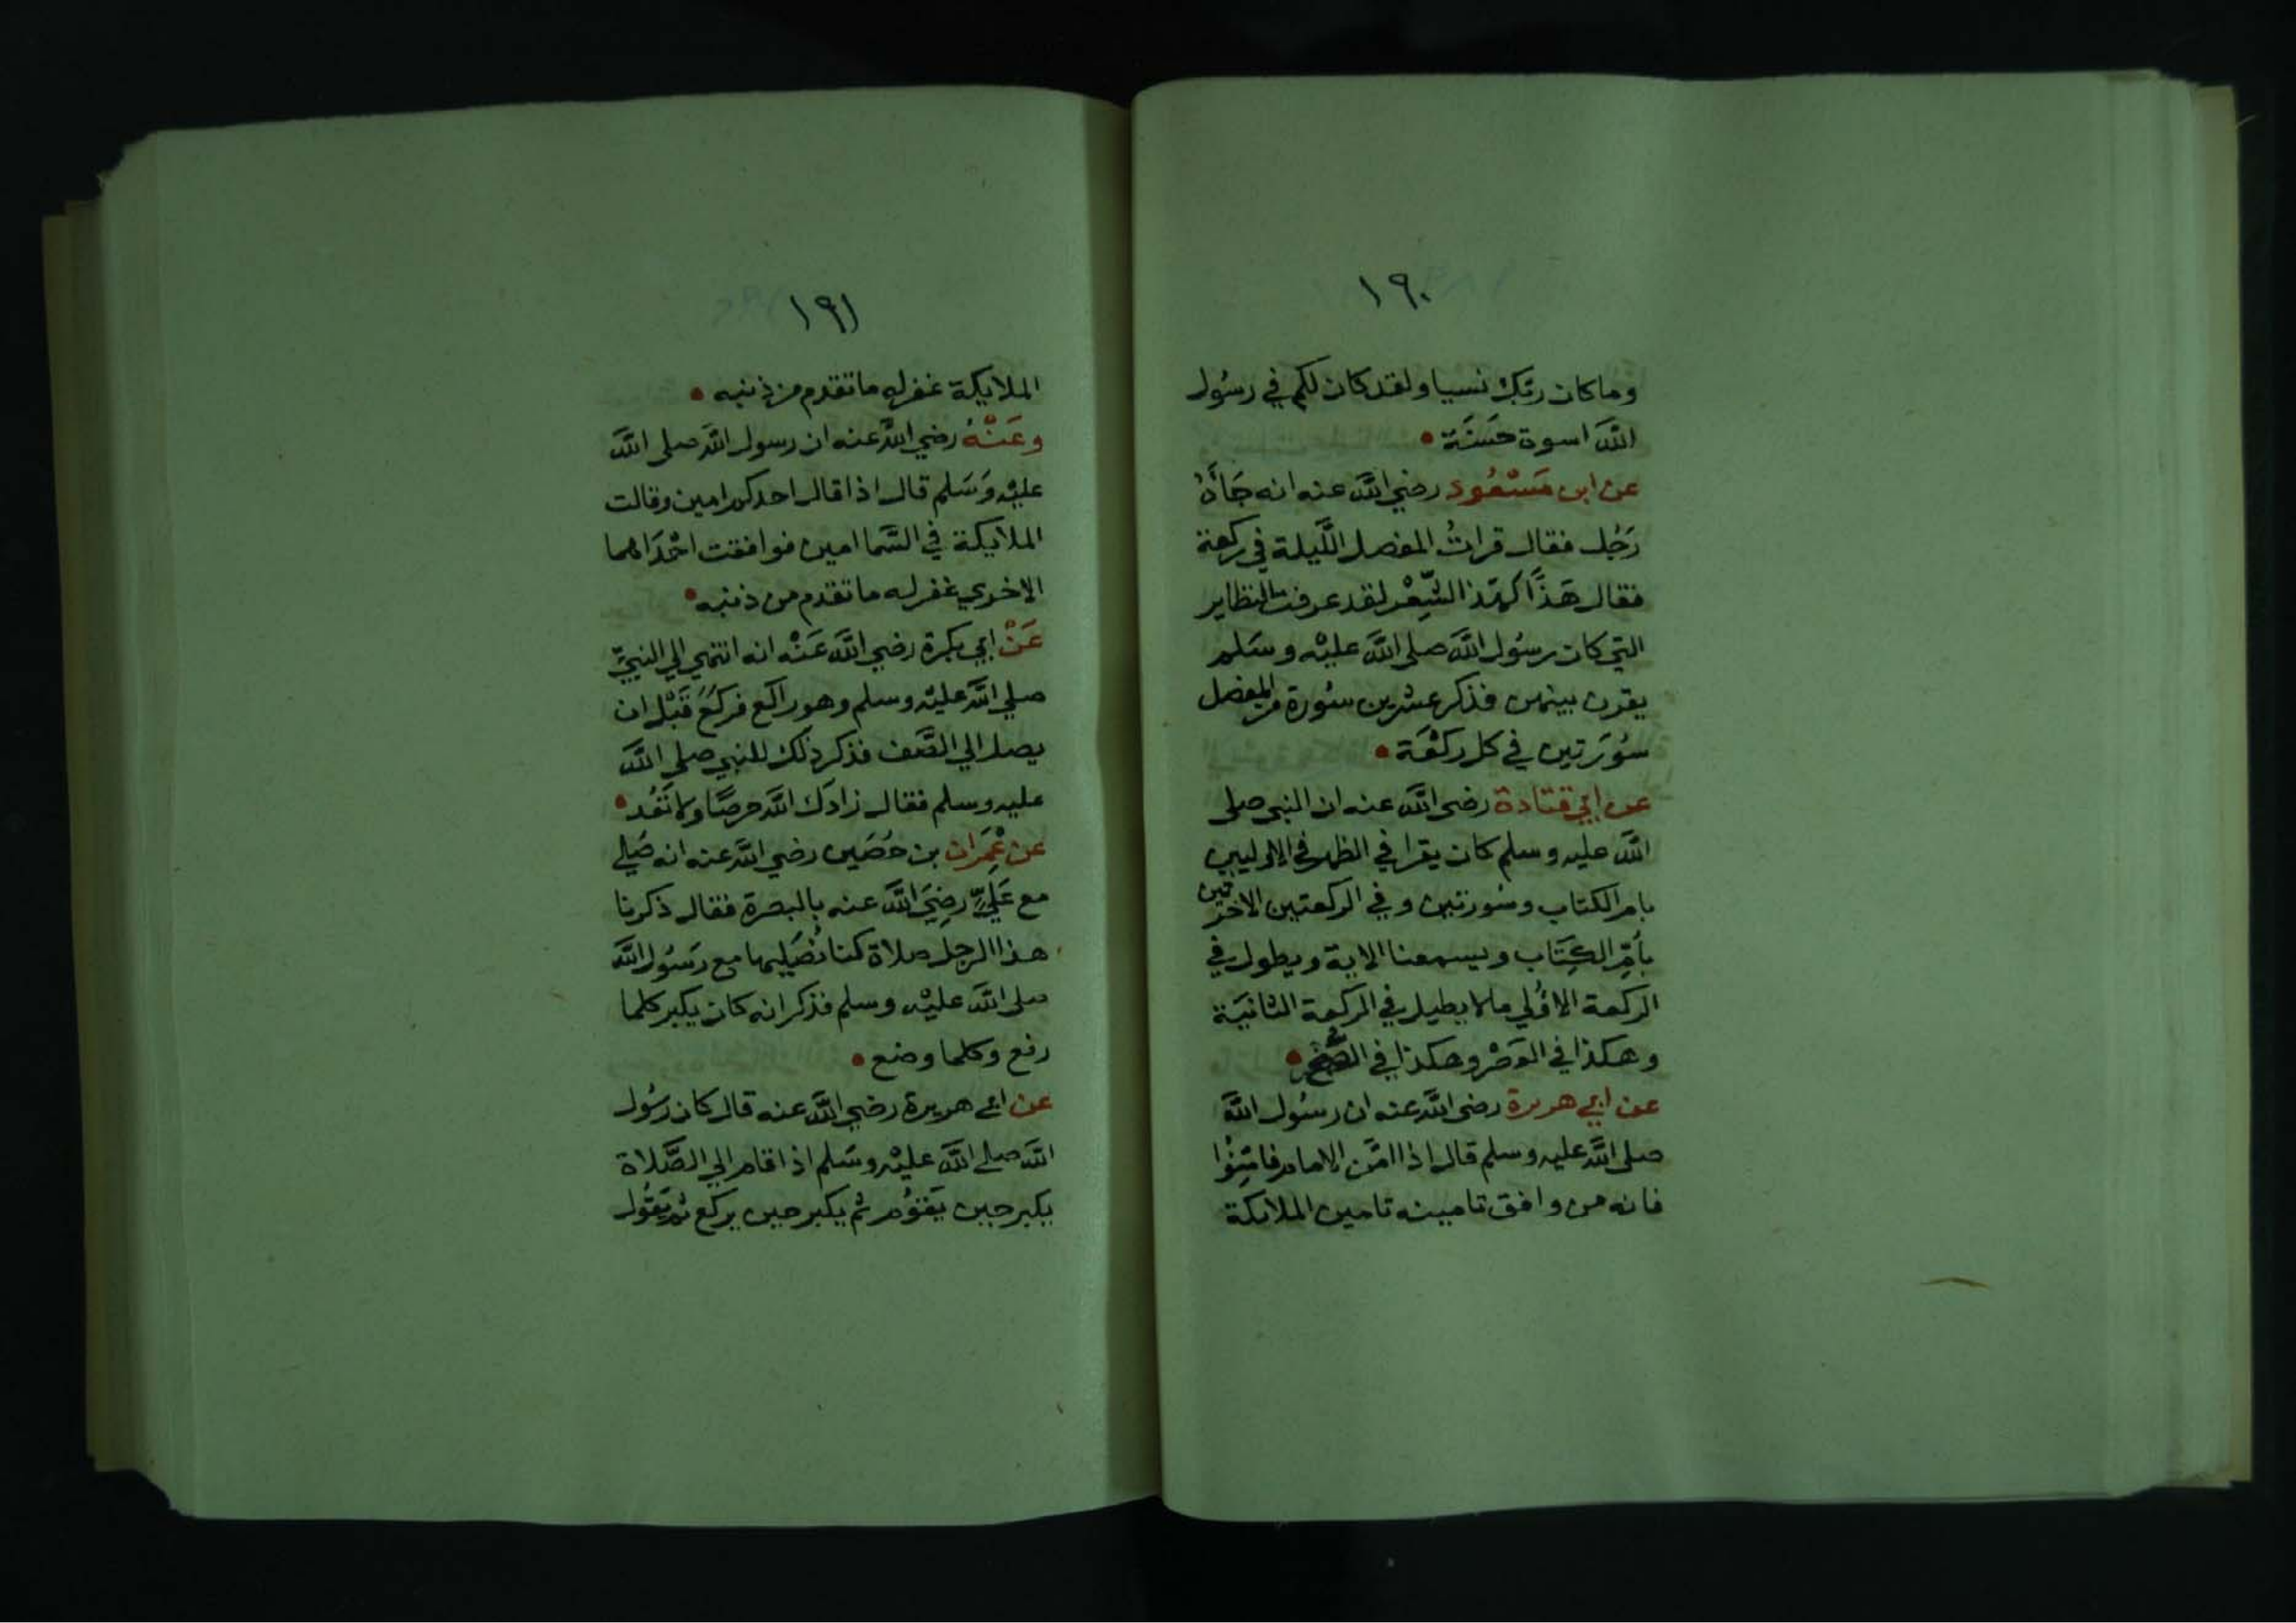 ١٩٠
وما كان ربّك نسيا ولقد كان لكم في رسُول
اللّه اسوة حَسَنَة
عن ابن مَسْعُود رضي اللّه عنه انه جَأَهُ
رَجُل فقال قراتُ المفصل اللَّيلة في ركعة
فقال هَذًّا كهَذّ الشِّعْر لقد عرفت النظاير
التي كان رسُول اللّه صلى اللّه عليْه وسَلم
يقرن بينهن فذكر عشرين سُورة من المفصل
سُورَتين في كل ركْعَة
عن ابي قتادة رضى اللّه عنه ان النبى صلى
اللّه عليه وسلم كان يقرا في الظهر في الاوليين
بام الكتاب وسُورتين وفي الركعتين الاخرتين
بأمِّ الكِتَاب ويسمعنا الاية ويطول في
الركعة الاوُلي مالا يطيل في الركعة الثانيَة
وهكذا في العَصْر وهكذا في الصُّبح
عن ابي هريرة رضى اللّه عنه ان رسُول اللّه
صلى اللّه عليه وسلم قال اذا امَّن الامام فامِّنُوا
فانه من وافق تامينه تامين الملايكة
١٩١
الملايكة غفر له ما تقدم من ذنبه
وعَنْهُ رضي اللّه عنه ان رسول اللّه صلى اللّه
عليْه وَسَلم قال اذا قال احدكم امين وقالت
الملايكة في السَّما امين فوافقت احْدَاهما
الاخري غفر له ما تقدم من ذنبه
عَنْ ابي بكرة رضي اللّه عَنْه انه انتهي الي النبيِّ
صلي اللّه عليْه وسلم وهو راكع فركَعَ قَبْل ان
يصل الي الصَّف فذكر ذلك للنبي صلى اللّه
عليه وسلم فقال زادَك اللّه حرصًا ولا تَعُد
عن عِمْرَان بن حُصَين رضي اللّه عنه انه صَلي
مع عَليٍّ رضِيَ اللّه عنه بالبصرة فقال ذكرنا
هذا الرجل صلاة كنا نُصَليها مع رَسُول اللّه
صلى اللّه عليْه وسلم فذكر انه كان يكبر كلما
رفع وكلما وضع
عن ابي هريرة رضي اللّه عنه قال كان رسُول
اللّه صلي اللّه عليْه وسَلم اذا قام الي الصَّلاة
يكبر حين يَقوُم ثم يكبر حين يركع ثم يَقوُل